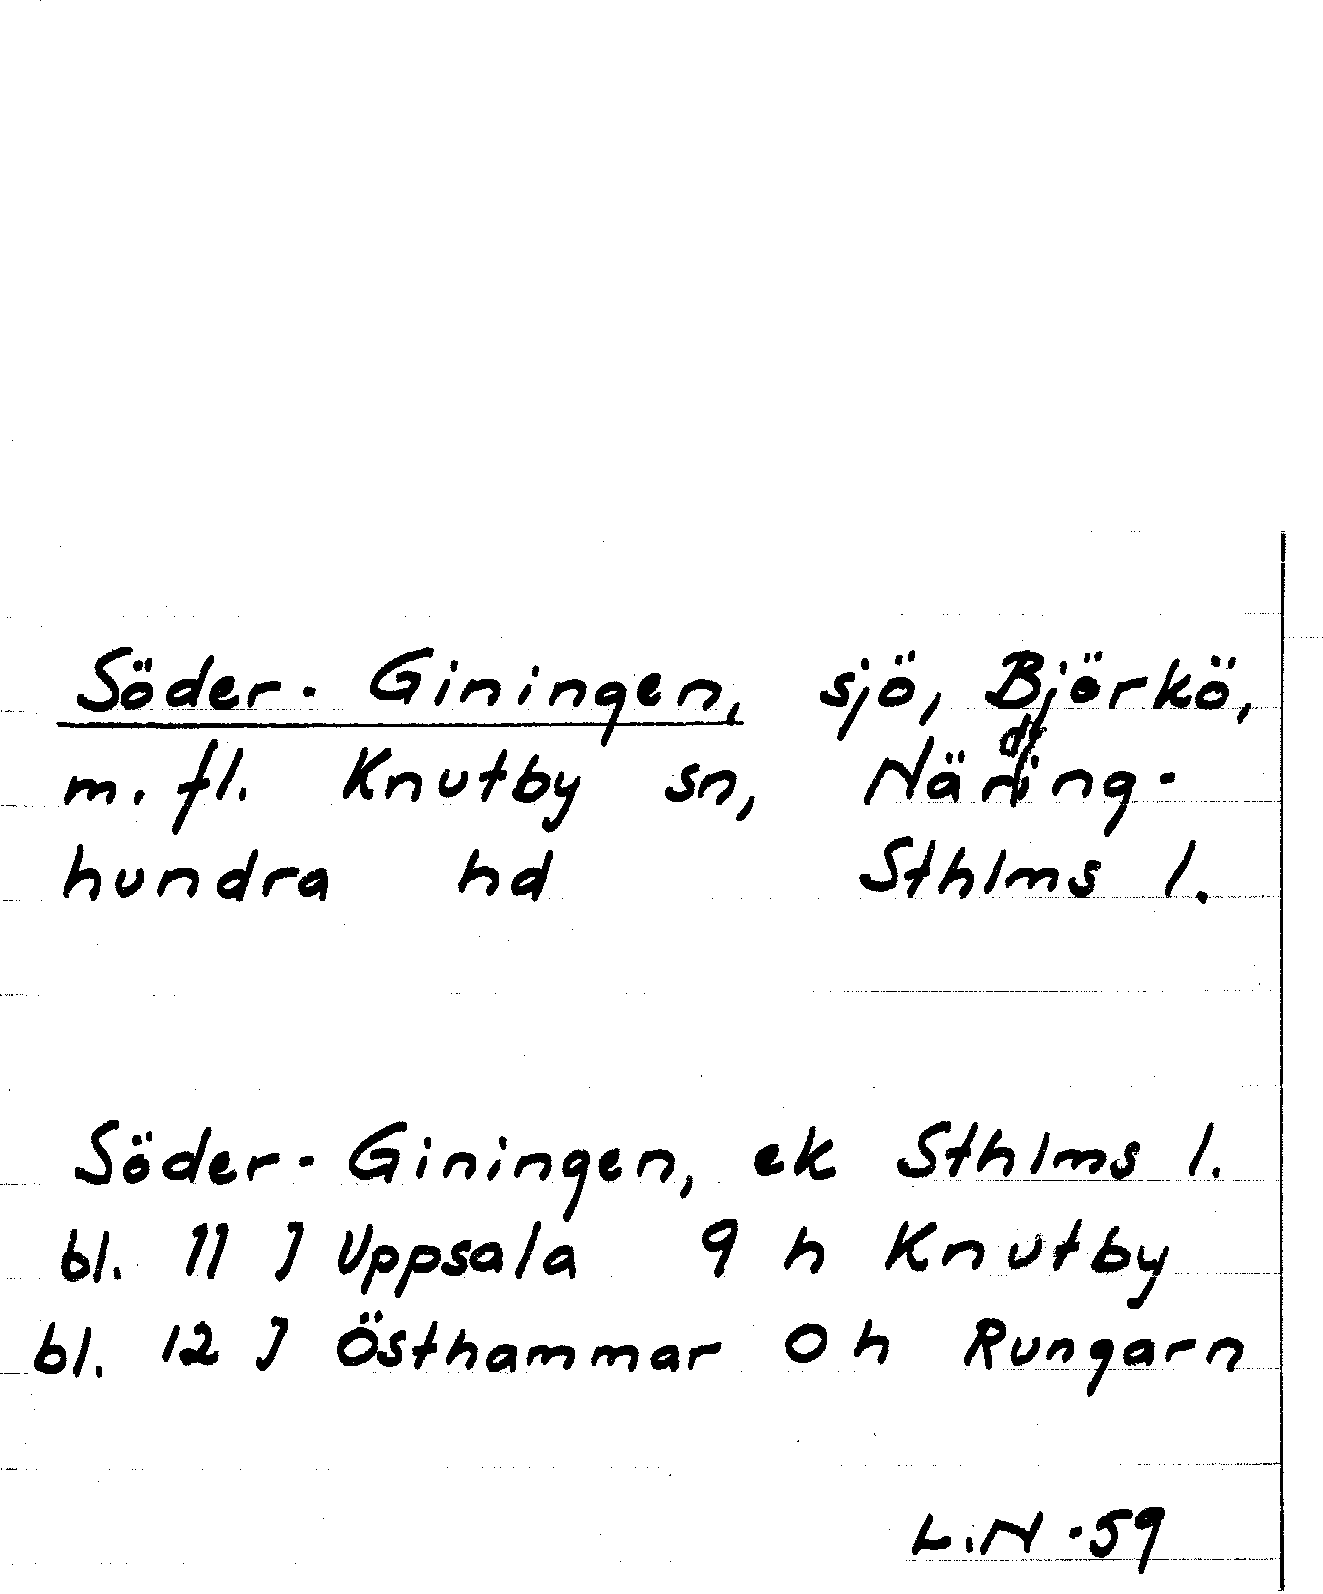 Söder- Giningen, sjö, Björkö,
m. fl. Knutby sn, Närding-
hundra hd Sthlms l.
Söder- Giningen, ek Sthlms l.
bl. 11 J Uppsala 9 h Knutby
bl. 12 J Östhammar 0 h Rungarn
L.N -59